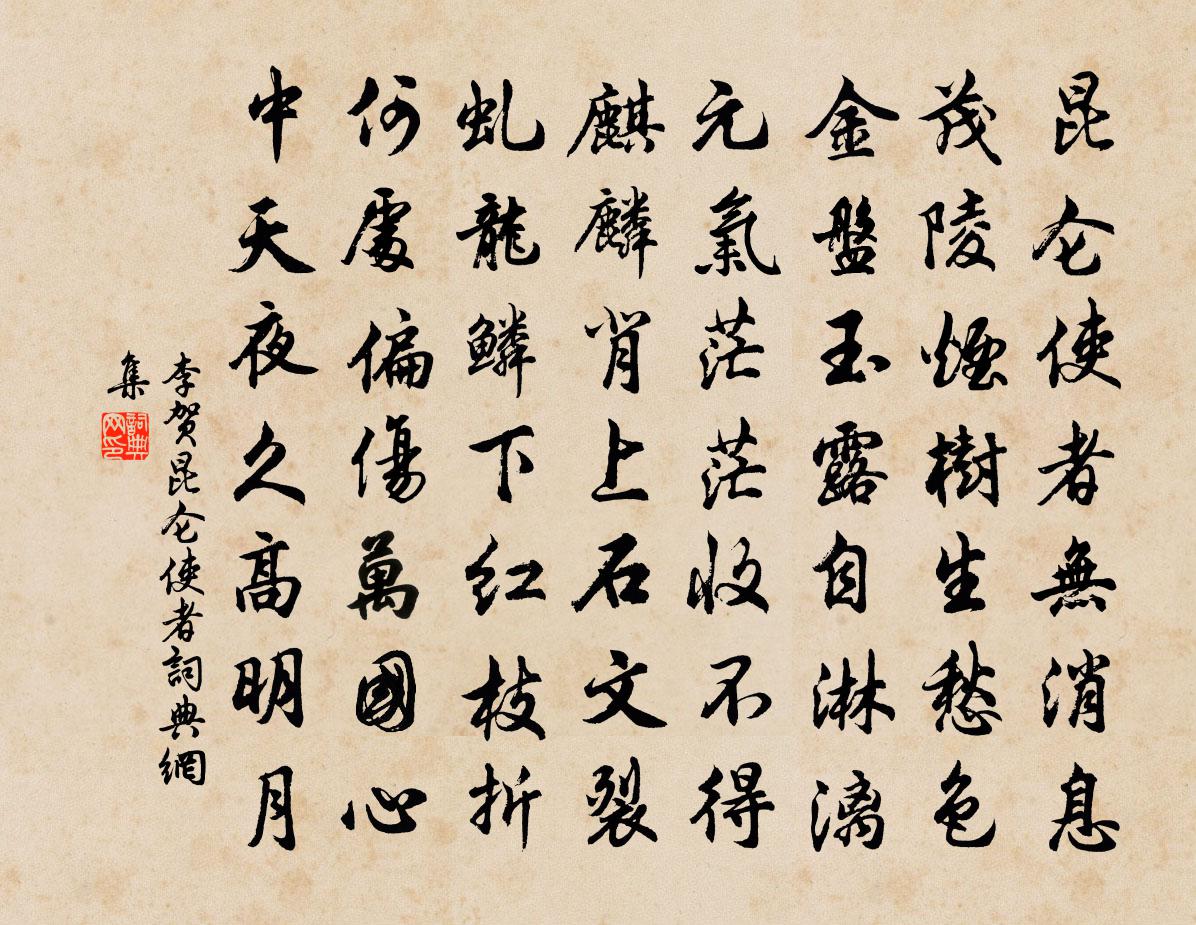 昆仑使者無消息
茂陵煙樹生愁色
金盤玉露自淋漓
元氣茫茫收不得
麒麟背上石文裂
虬龍鱗下红枝折
何處偏傷萬國心
中天夜久高明月
李贺昆仑使者詞典網
集
詞典
网印